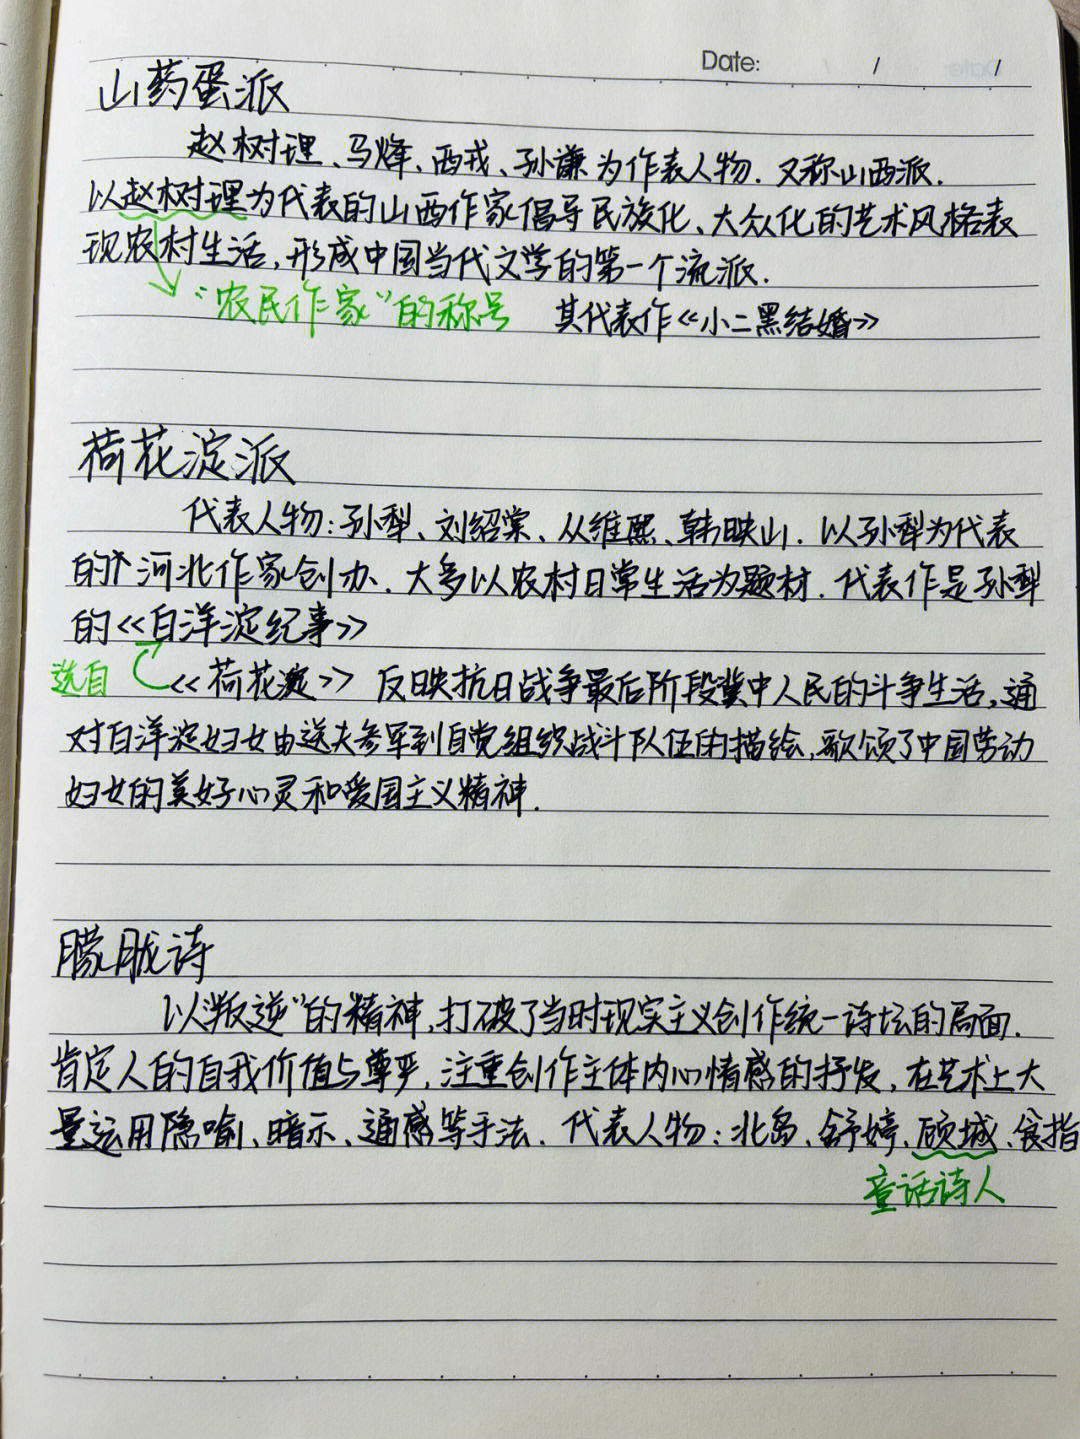 Date: / /
山药蛋派
赵树理、马烽、西戎、孙谦为作表人物.又称山西派.
以赵树理为代表的山西作家倡导民族化、大众化的艺术风格表
现农村生活,形成中国当代文学的第一个流派.
“农民作家”的称号 其代表作《小二黑结婚》
荷花淀派
代表人物:孙犁、刘绍棠、从维熙、韩映山.以孙犁为代表
的个河北作家创办.大多以农村日常生活为题材.代表作是孙犁
的《白洋淀纪事》
选自 《荷花淀》 反映抗日战争最后阶段冀中人民的斗争生活,通
对白洋淀妇女由送夫参军到自觉组织战斗队伍的描绘,歌颂了中国劳动
妇女的美好心灵和爱国主义精神.
朦胧诗
以“叛逆”的精神,打破了当时现实主义创作统一诗坛的局面.
肯定人的自我价值与尊严,注重创作主体内心情感的抒发,在艺术上大
量运用隐喻、暗示、通感等手法.代表人物:北岛、舒婷、顾城、食指
童话诗人